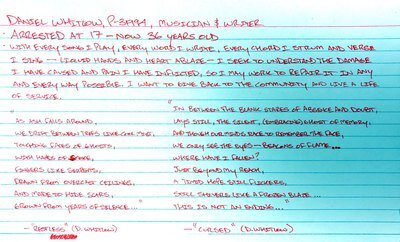 DANIEL WHITLOW, P-89194, MUSICIAN & WRITER
ARRESTED AT 17 - NOW 36 YEARS OLD
WITH EVERY SONG I PLAY, EVERY WORD I WRITE, EVERY CHORD I STRUM AND VERSE
I SING -- HANDS AND HEART ABLAZE - I SEEK TO UNDERSTAND THE DAMAGE
I HAVE CAUSED AND PAIN I HAVE INFLICTED, SO I MAY WORK TO REPAIR IT IN ANY
AND EVERY WAY POSSIBLE. I WANT TO GIVE BACK TO THE COMMUNITY AND LIVE A LIFE
OF SERVICE.
"
AS ASH FALLS AROUND,
WE DRIFT BETWEEN TREES LIKE
TOUCHING FACES OF GHOSTS
WITH HANDS OF
FINGERS LIKE SERPENTS,
DRAWN FROM OVERCAST CEILINGS,
AND TO HIDE SCARS,
GROWN FROM YEARS OF SILENCE..."
- "RESTLESS" (D. WHITLOW)
"IN BETWEEN THE BLANK STARES OF ABSENCE AND DOUBT,
LAYS STILL, THE SILENT, (EMBRACING) GHOST OF MEMORY.
AND THOUGH OUR MINDS RACE TO REMEMBER THE FACE,
WE ONLY SEE THE EYES - BEACONS OF FLAME...
WHERE HAVE I FALLEN?
JUST BEYOND MY REACH,
A TIMID HOPE STILL FLICKERS,
STILL SHIVERS LIKE A FROZEN BLAZE...
THIS IS NOT AN ENDING..."
- "CURSED" (D. WHITLOW)